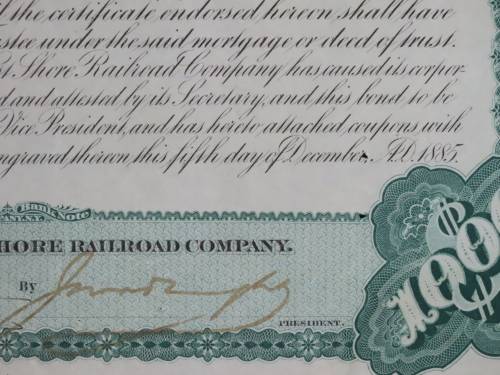 the certificate endorsed hereon shall have
stee under the said mortgage or deed of trust.
t Shore Railroad Company has caused its corpor-
d and attested by its Secretary, and this bond to be
Vice President, and has hereto attached coupons, with
ngraved thereon this fifth day of December, A.D. 1885.
Bank Note
HORE RAILROAD COMPANY.
By
PRESIDENT.
$1000